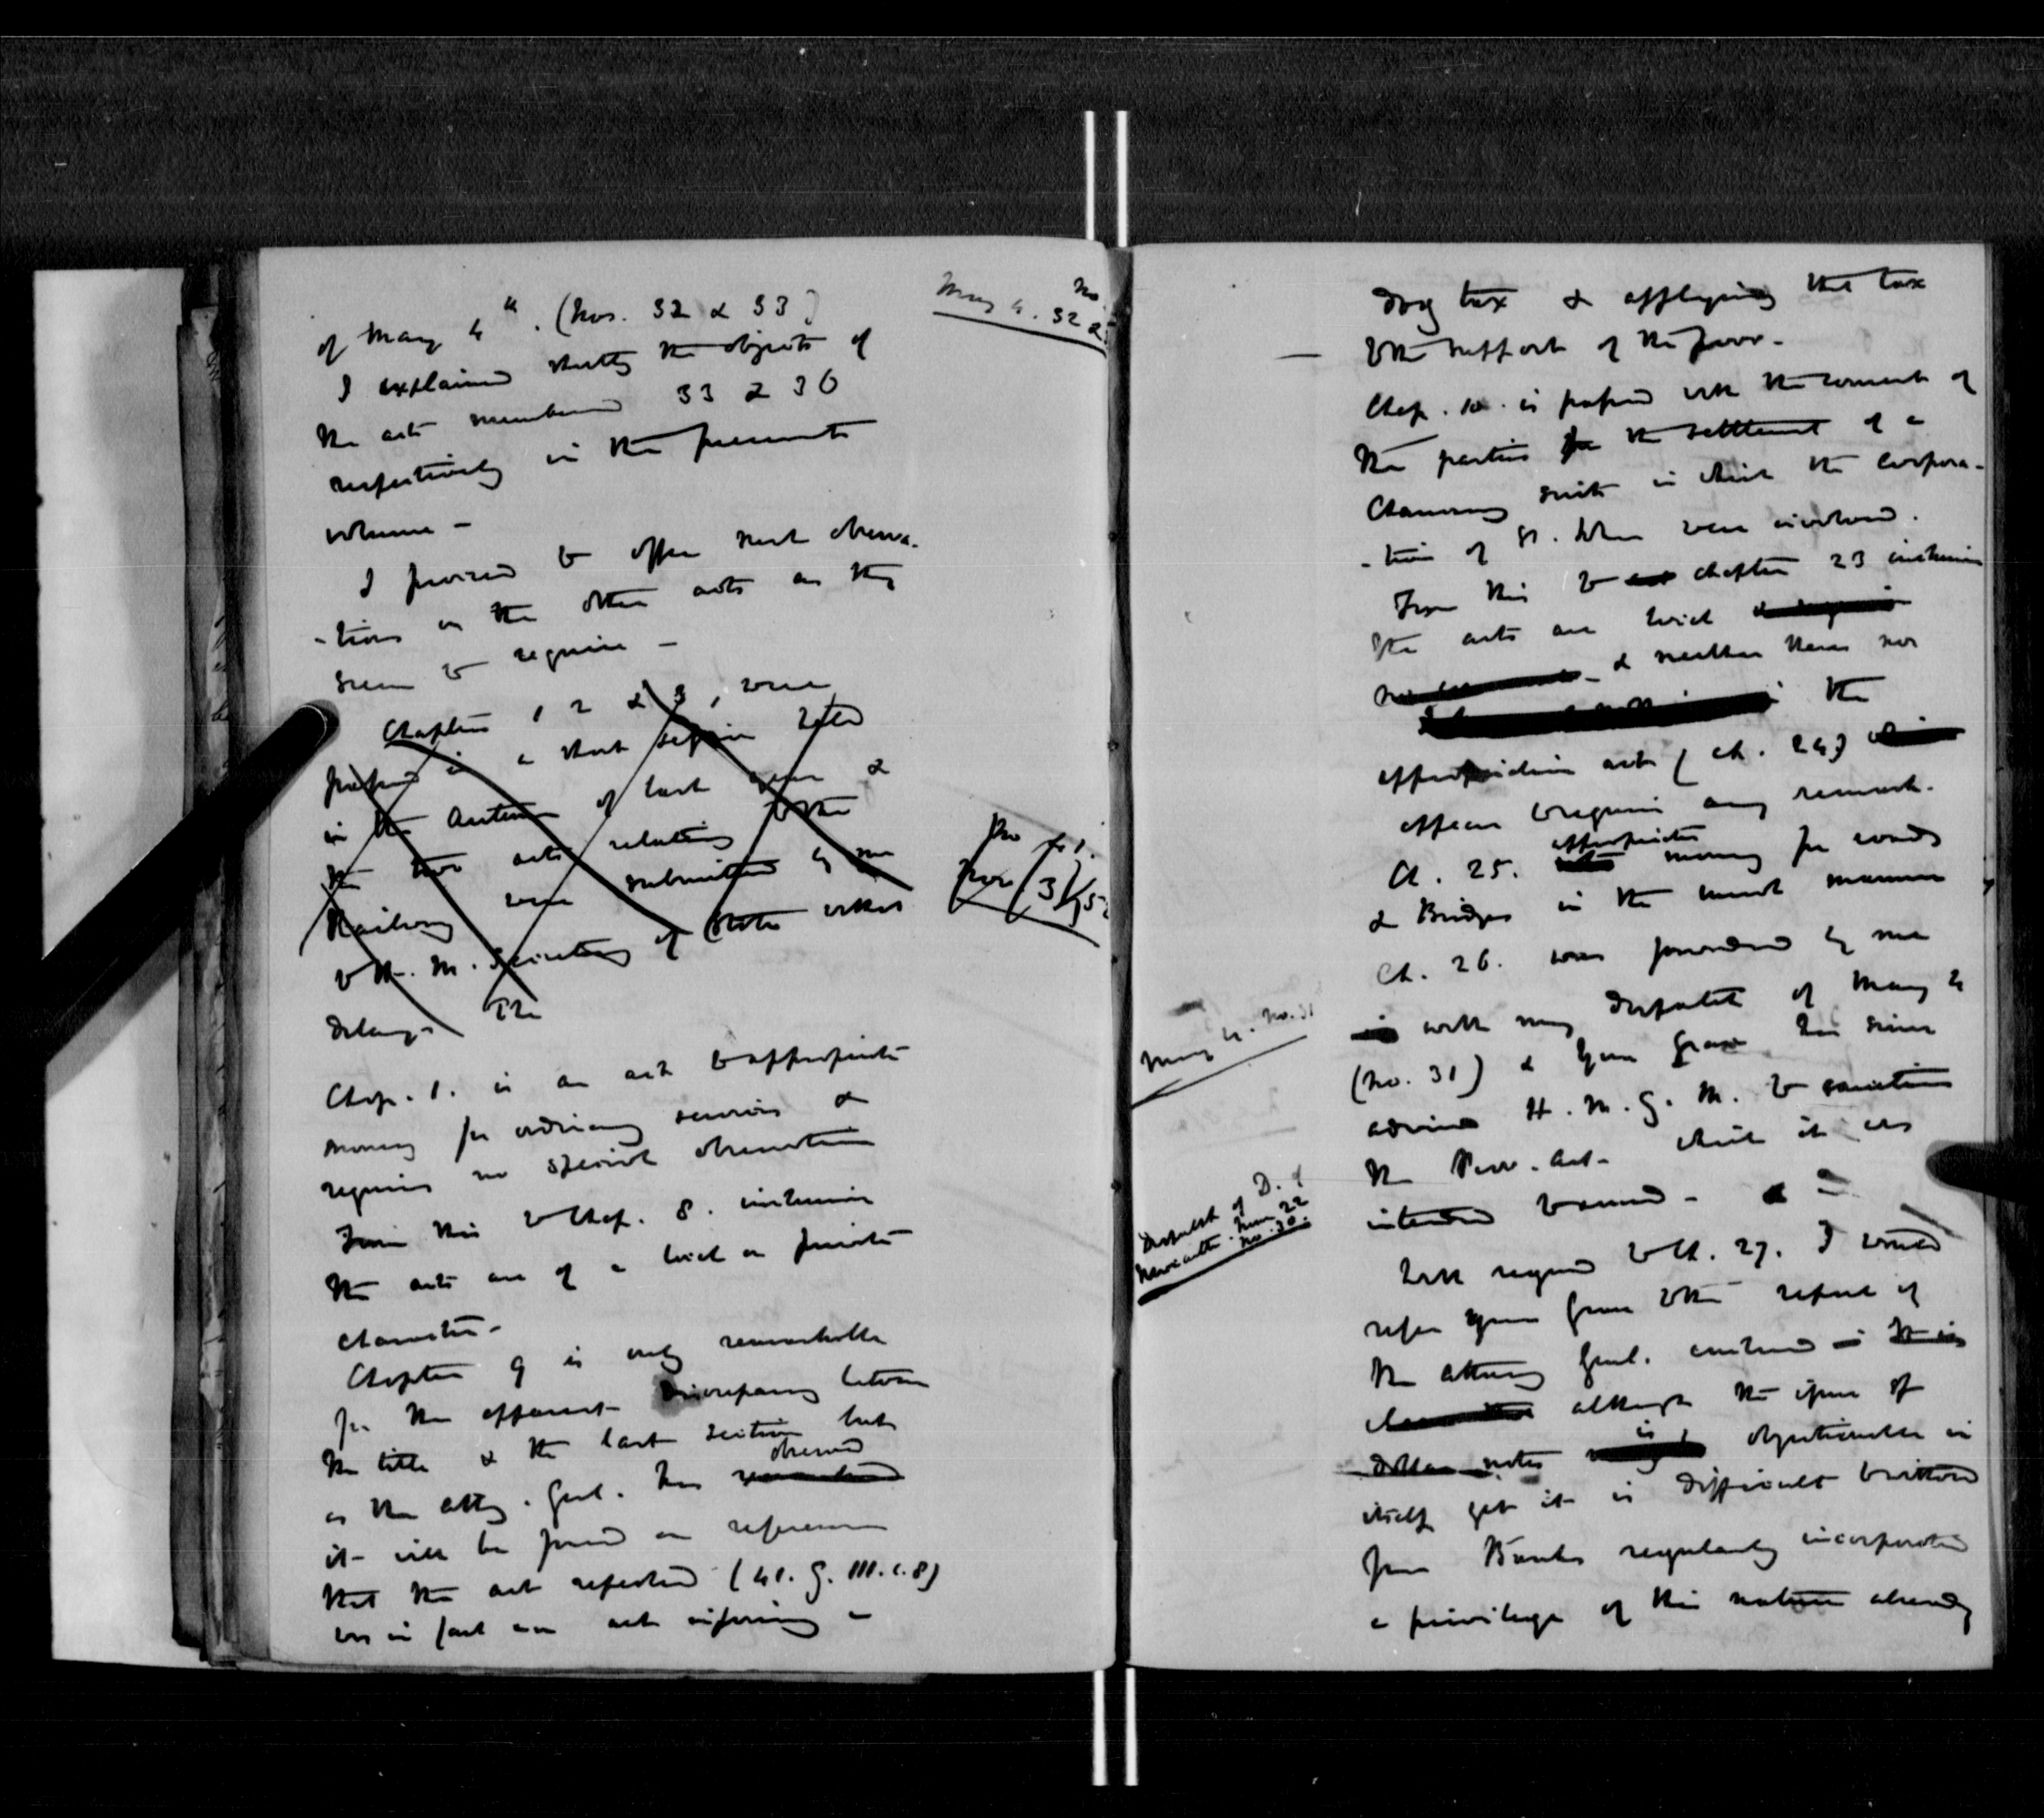 of May 4th. (Nos. 32 & 33)
I explained shortly the objects of
the acts numbered 33 & 36
respectively in the present
volume -
I proceed to offer such observa-
-tions on the other acts as they
seem to require -
Chapters 1 2 & 3, were
passed in a short session held
in the Autumn of last year &
the two acts relating to the
Railway were submitted by me
to H. M. Secretary of State without
delay. The
Chap. 1. is an act to appropriate
money for ordinary services &
requires no special observation
From this to Chap. 8. inclusive
the acts are of a local or private
character -
Chapter 9 is only remarkable
for the apparent discrepancy between
the title & the last section but
observed
as the Atty. Genl. has remarked
it will be found on reference
that the act repealed (41. G. III. c. 8)
was in fact an act imposing a
May 4. No. 32 &
No
dog tax & applying that tax
to the support of the poor -
Chap. 10. is passed with the consent of
the parties for the settlement of a
Chancery suit in which the corpora-
-tion of St. John were involved.
From this to chapter 23 inclusive
the acts are local
& neither these nor
the
appropriation act (ch. 24)
appear to require any remark.
appropriates
Ch. 25. money for roads
& Bridges in the usual manner
Ch. 26. was forwarded by me
in with my despatch of May 4
(No. 31) & Your Grace has since
advised H. M. G. M. to sanction
the Prov. Act - which it was
intended to amend -
With regard to Ch. 27. I would
refer your Grace to the report of
the Attorney Genl.
although the issue of
is
dollar notes objectionable in
itself yet it is difficult to withhold
from Banks regularly incorporated
a privilege of this nature already
May 4. No. 31
Despatch of D. of
Newcastle. June 22
No. 30.